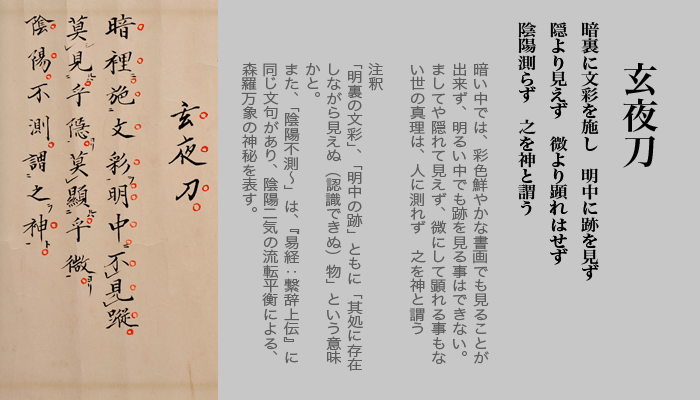 玄夜刀
暗裏に文彩を施し　明中に跡を見ず
隠より見えず　微より顕れはせず
陰陽測らず　之を神と謂う
暗い中では、彩色鮮やかな書画でも見ることが
出来ず、明るい中でも跡を見る事はできない。
ましてや隠れて見えず、微にして顕れる事もな
い世の真理は、人に測れず　之を神と謂う
注釈
「明裏の文彩」、「明中の跡」ともに「其処に存在
しながら見えぬ（認識できぬ）物」という意味
かと。
また、「陰陽不測～」は、『易経：繋辞上伝』に
同じ文句があり、陰陽二気の流転平衡による、
森羅万象の神秘を表す。
玄夜刀
暗裡施文彩明中不見蹤
莫見乎隠莫顯乎微
陰陽不測謂之神